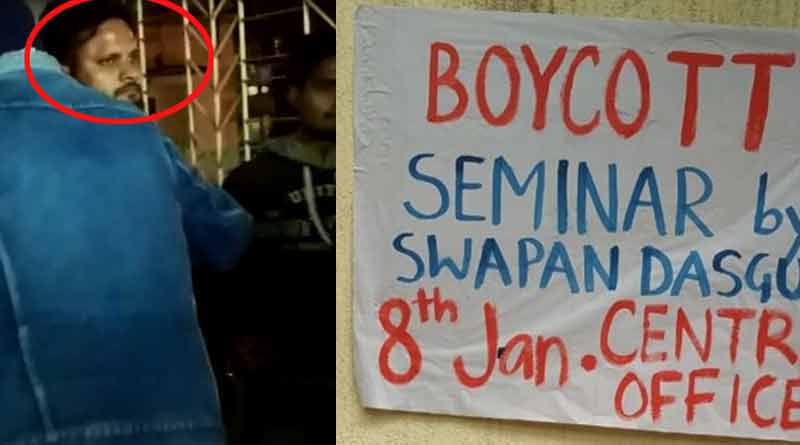 BOYCOTT
SEMINAR by
SWAPAN DASGU
8th Jan. CENTR
OFFICE
UNIF